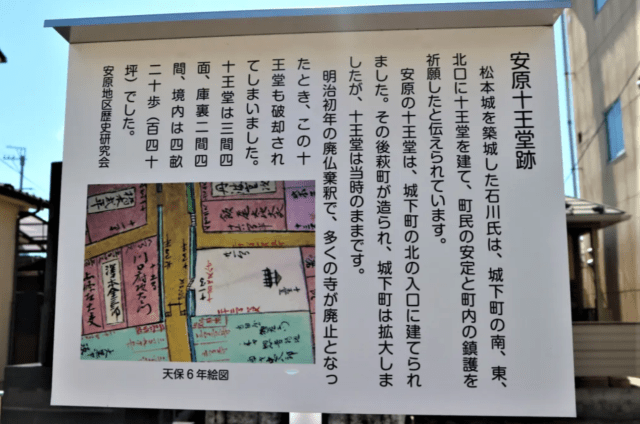 安原十王堂跡
松本城を築城した石川氏は、城下町の南、東、
北口に十王堂を建て、町民の安定と町内の鎮護を
祈願したと伝えられています。
安原の十王堂は、城下町の北の入口に建てられ
ました。その後萩町が造られ、城下町は拡大しま
したが、十王堂は当時のままです。
明治初年の廃仏棄釈で、多くの寺が廃止となっ
たとき、この十
王堂も破却され
てしまいました。
十王堂は三間四
面、庫裏二間四
間、境内は四畝
二十歩（百四十
坪）でした。
安原地区歴史研究会
天保６年絵図